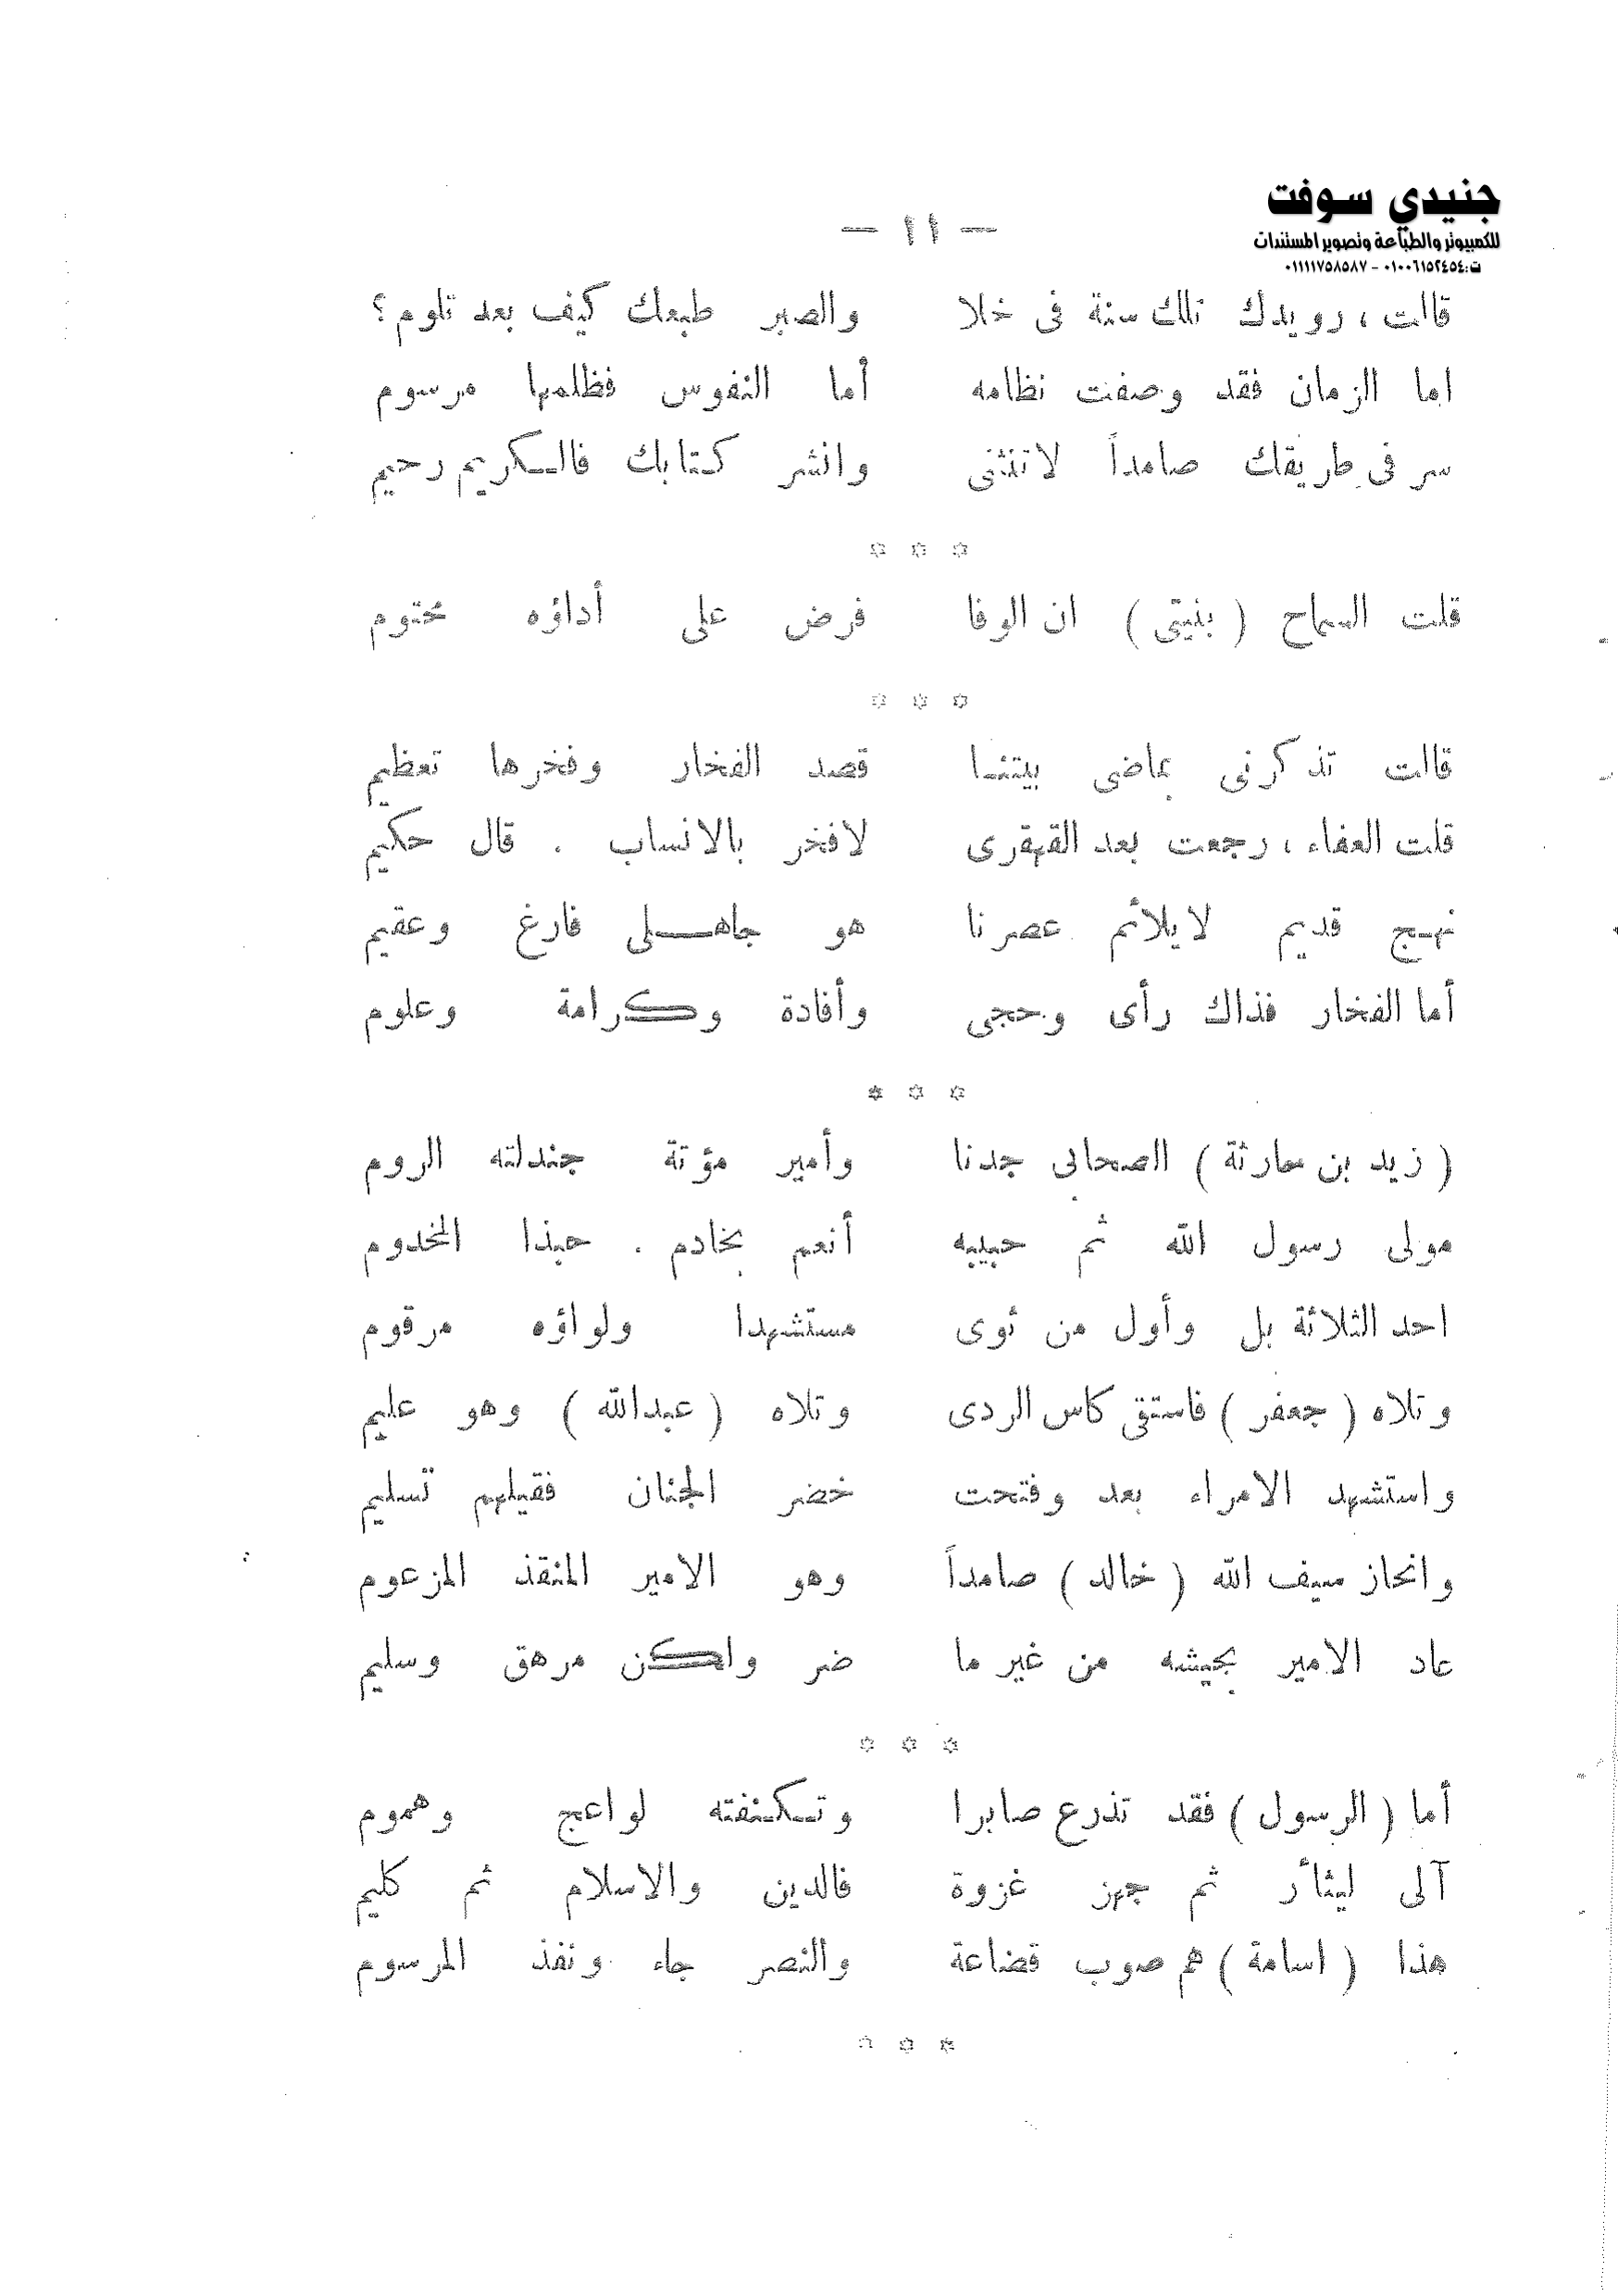 جنيدي سوفت
للكمبيوتر والطباعة وتصوير المستندات
ت:٠١٠٠٦١٥٢٤٥٤ - ٠١١١١٧٥٨٥٨٧
— ١١ —
قالت ، رويدك تلك سنة فى خلا والصبر طبعك كيف بعد تلوم ؟
اما الزمان فقد وصفت نظامه أما النفوس فظلمها مرسوم
سر فى طريقك صامداً لاتنثنى وانشر كتابك فالكريم رحيم
* * *
قلت السماح ( بنيتى ) ان الوفا فرض على أداؤه محتوم
* * *
قالت تذكرنى بماضى بيتنا قصد الفخار وفخرها تعظيم
قلت العفاء ، رجعت بعد القهقرى لافخر بالانساب . قال حكيم
نهج قديم لايلائم عصرنا هو جاهلى فارغ وعقيم
أما الفخار فذاك رأى وحجى وأفادة وكرامة وعلوم
* * *
( زيد بن حارثة ) الصحابى جدنا وأمير مؤتة جندلته الروم
مولى رسول الله ثم حبيبه أنعم بخادم . حبذا المخدوم
احد الثلاثة بل وأول من ثوى مستشهدا ولواؤه مرقوم
وتلاه ( جعفر ) فاستقى كاس الردى وتلاه ( عبدالله ) وهو عليم
واستشهد الامراء بعد وفتحت خضر الجنان فقيلهم تسليم
وانحاز سيف الله ( خالد ) صامداً وهو الامير المنقذ المزعوم
عاد الامير بجيشه من غير ما ضر ولكن مرهق وسليم
* * *
أما ( الرسول ) فقد تذرع صابرا وتكنفته لواعج وهموم
آلى ليثأر ثم جهز غزوة فالدين والاسلام ثم كليم
هذا ( اسامة ) هم صوب قضاعة والنصر جاء ونفذ المرسوم
* * *